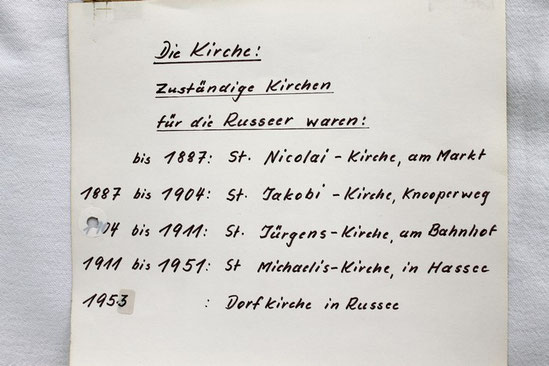 Die Kirche:
Zuständige Kirchen
für die Russeer waren:
bis 1887: St. Nicolai - Kirche, am Markt
1887 bis 1904: St. Jakobi - Kirche, Knooperweg
04 bis 1911: St. Jürgens-Kirche, am Bahnhof
1911 bis 1951: St Michaelis-Kirche, in Hassee
1953 : Dorfkirche in Russee